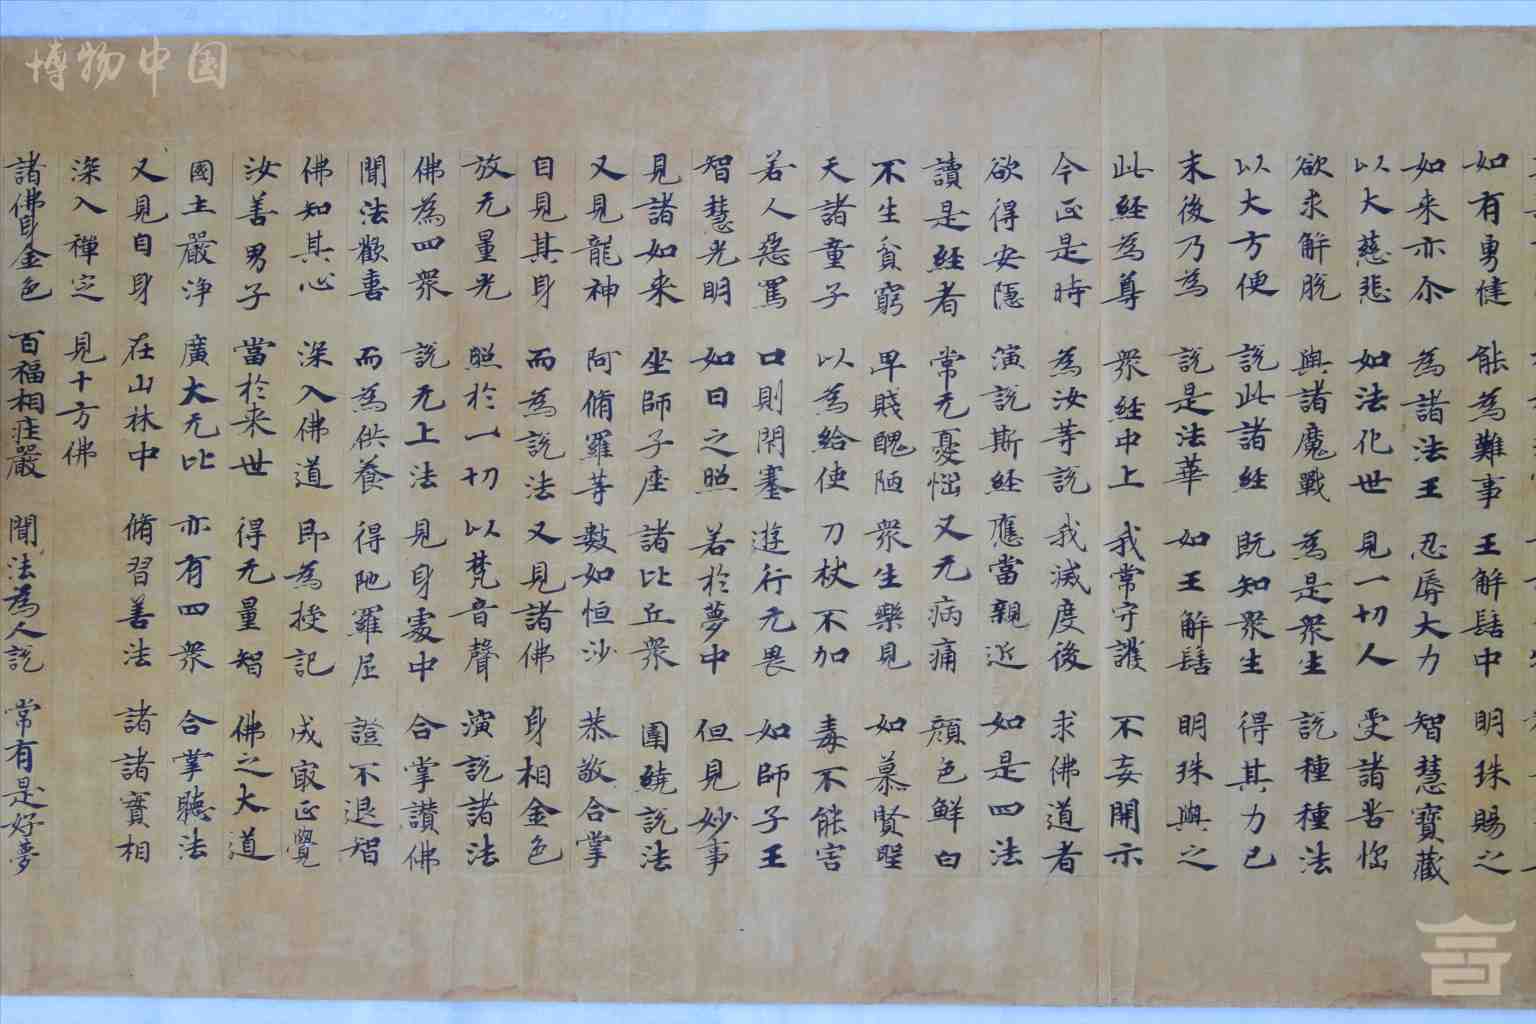 博物中国
如有勇健 能為難事 王解髻中 明珠賜之
如来亦尒 為諸法王 忍辱大力 智慧寶藏
以大慈悲 如法化世 見一切人 受諸苦惱
欲求解脫 與諸魔戰 為是衆生 說種種法
以大方便 說此諸経 既知衆生 得其力已
末後乃為 說是法華 如王解髻 明珠與之
此経為尊 衆経中上 我常守護 不妄開示
今正是時 為汝等說 我滅度後 求佛道者
欲得安隠 演說斯経 應當親近 如是四法
讀是経者 常无憂惱 又无病痛 顔色鮮白
不生貧窮 卑賤醜陋 衆生樂見 如慕賢聖
天諸童子 以為給使 刀杖不加 毒不能害
若人惡罵 口則閇塞 遊行无畏 如師子王
智慧光明 如日之照 若於夢中 但見妙事
見諸如来 坐師子座 諸比丘衆 圍繞說法
又見龍神 阿脩羅等 數如恒沙 恭敬合掌
自見其身 而為說法 又見諸佛 身相金色
放无量光 照於一切 以梵音聲 演說諸法
佛為四衆 說无上法 見身處中 合掌讃佛
聞法歡喜 而為供養 得陁羅尼 證不退智
佛知其心 深入佛道 即為授記 成㝡正覺
汝善男子 當於来世 得无量智 佛之大道
國土嚴淨 廣大无比 亦有四衆 合掌聽法
又見自身 在山林中 脩習善法 諸諸實相
深入禪定 見十方佛
諸佛身金色 百福相庄嚴 聞法為人說 常有是好夢